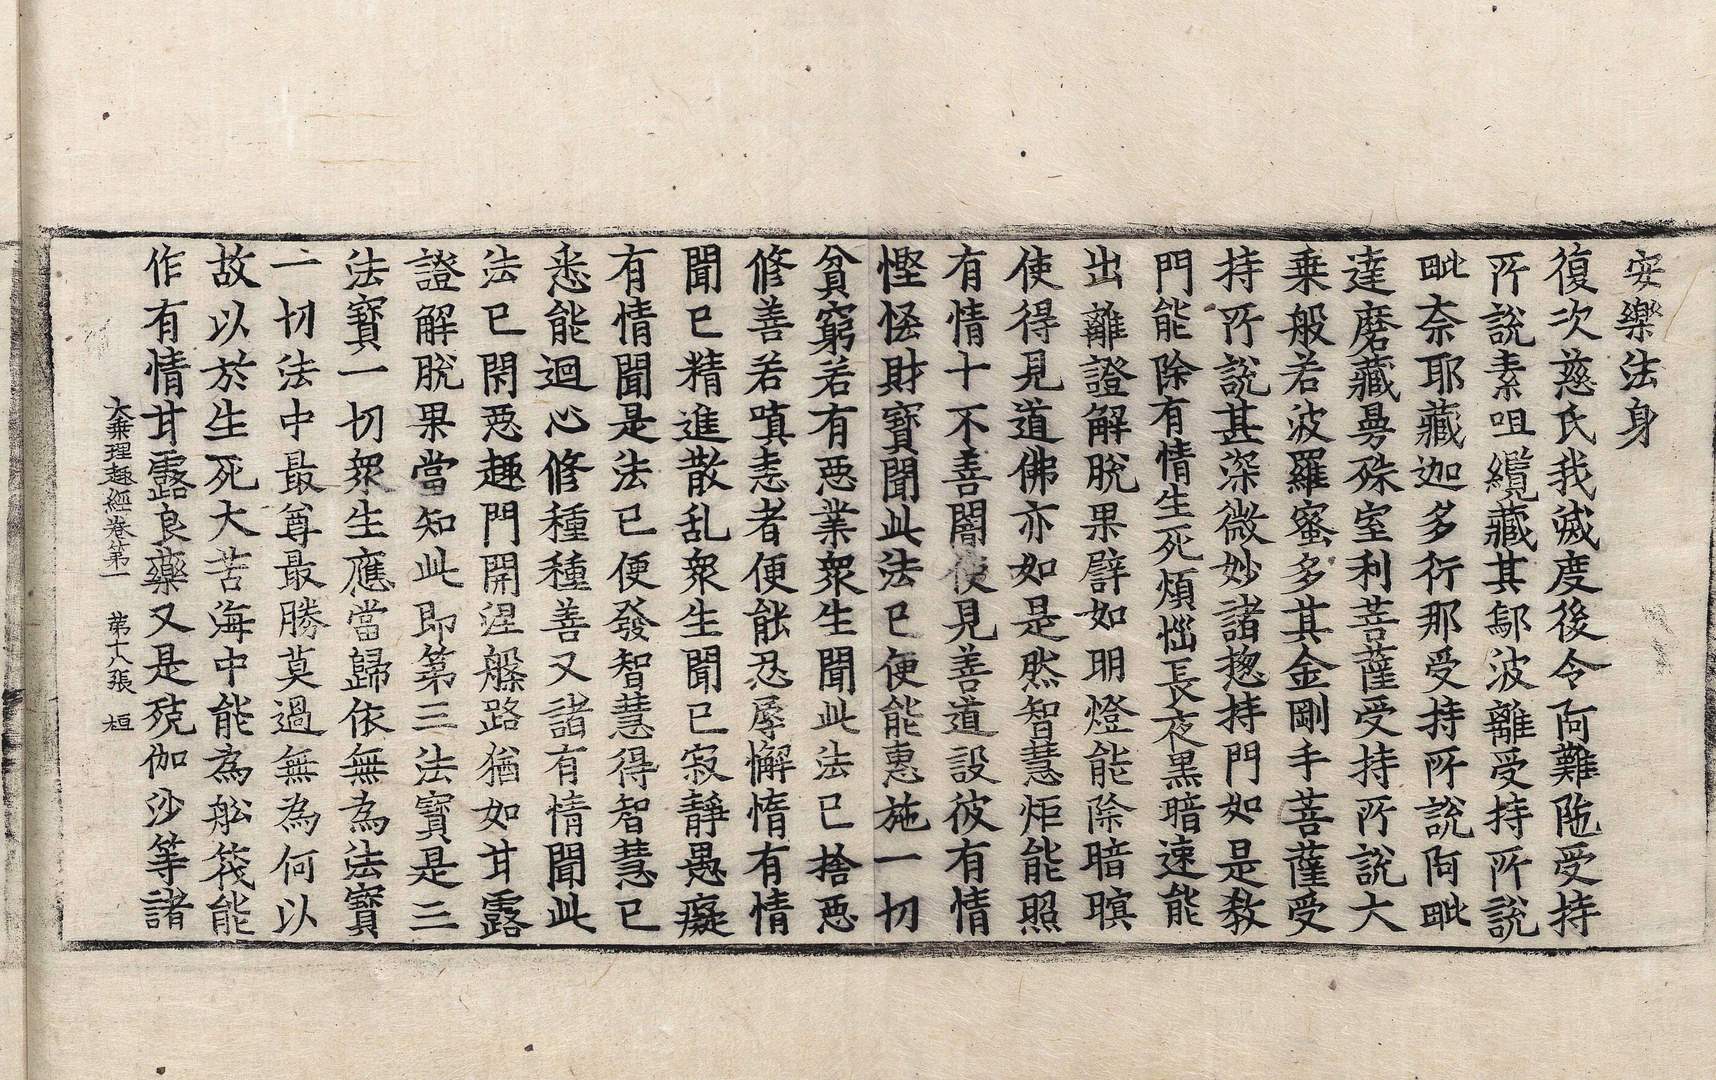 安樂法身
復次慈氏我滅度後令阿難陁受持
所說素呾纜藏其鄔波離受持所說
毗奈耶藏迦多衍那受持所說阿毗
達磨藏曼殊室利菩薩受持所說大
乘般若波羅蜜多其金剛手菩薩受
持所說甚深微妙諸揔持門如是教
門能除有情生死煩惱長夜黒暗速能
出離證解脫果譬如明燈能除暗暝
使得見道佛亦如是然智慧炬能照
有情十不善闇使見善道設彼有情
慳悋財寶聞此法已便能惠施一切
貧窮若有惡業衆生聞此法已捨惡
修善若嗔恚者便能忍辱懈惰有情
聞已精進散乱衆生聞已寂靜愚癡
有情聞是法已便發智慧得智慧已
悉能迴心修種種善又諸有情聞此
法已閇惡趣門開涅槃路猶如甘露
證解脫果當知此即第三法寶是三
法寶一切衆生應當歸依無為法寶
一切法中最尊最勝莫過無為何以
故以於生死大苦海中能為舩筏能
作有情甘露良藥又是殑伽沙等諸
大乘理趣經卷第一 第十八張 桓